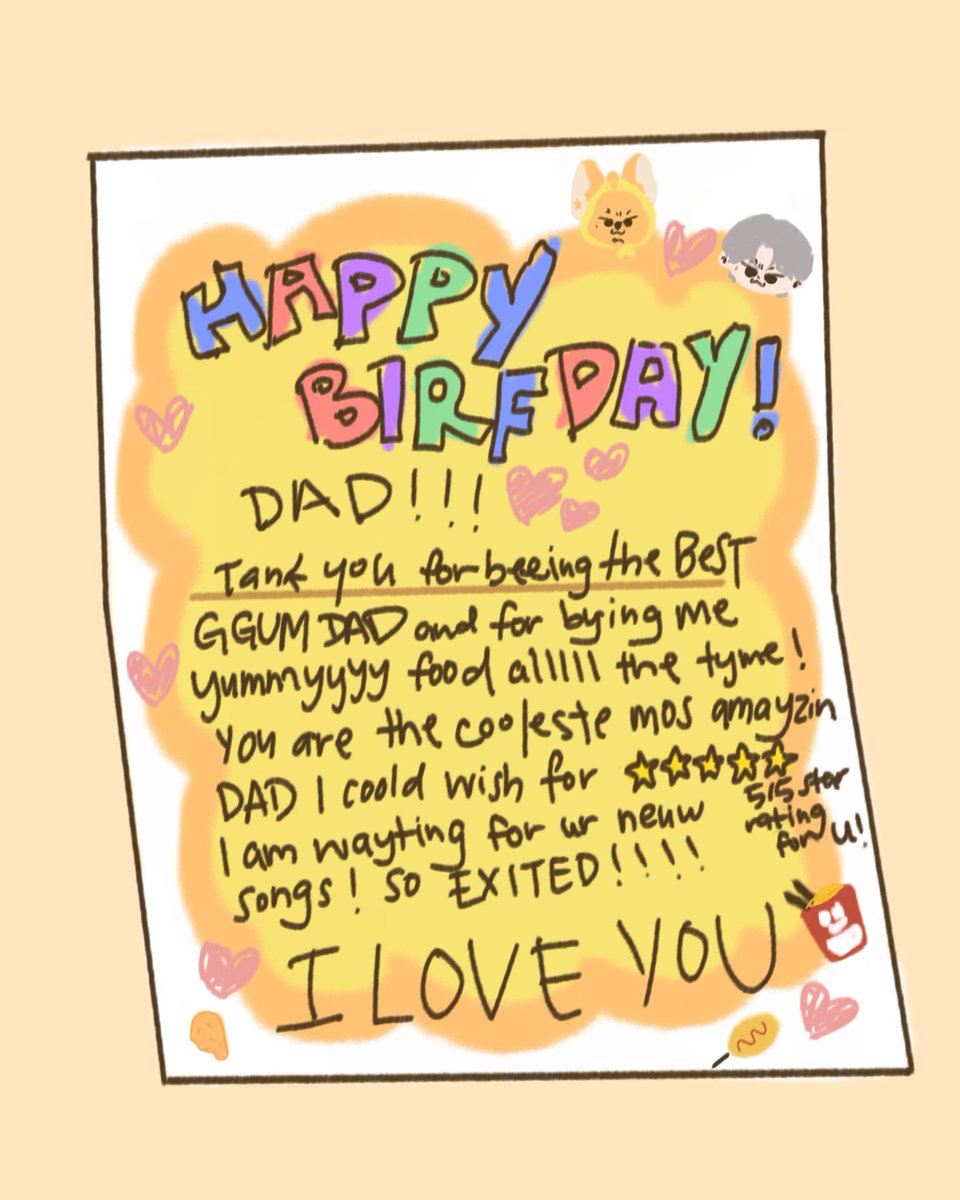 HAPPY
BIRFDAY!
DAD!!!
Tank you for beeing the BEST
GGUM DAD and for bying me
yummyyyy food alllll the tyme!
you are the cooleste mos amayzin
DAD I coold wish for
5/5 star
rating
for u!
I am wayting for ur neuw
songs! so EXITED!!!!
I LOVE YOU